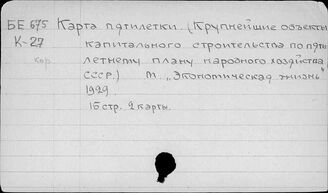 БЕ 675 Карта пятилетки. (Крупнейшие объекты
К-27 капитального строительства по пяти
кор. летнему плану народного хозяйства
СССР.) М. „Экономическая жизнь"
1929.
16 стр. 2 карты.